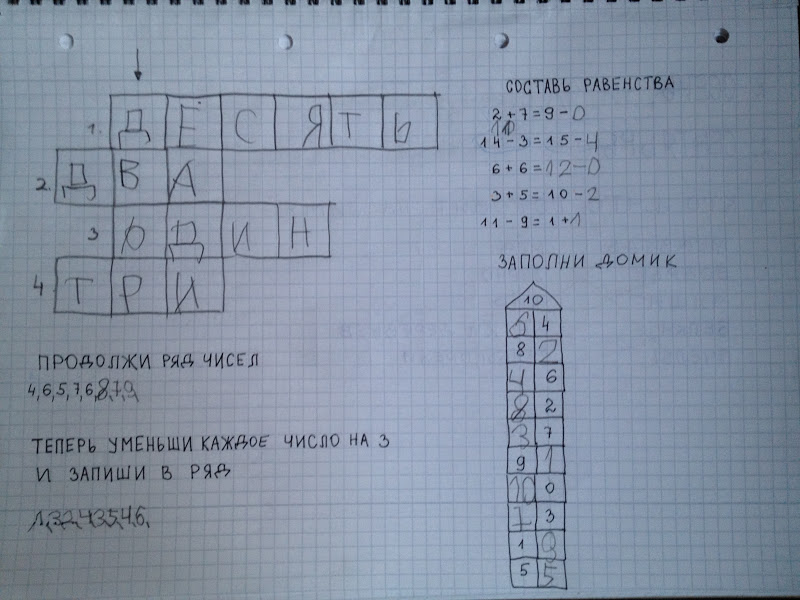 1. ДЕСЯТЬ
2. ДВА
3 ОДИН
4 ТРИ
ПРОДОЛЖИ РЯД ЧИСЕЛ
4,6,5,7,6,8,7,9,
ТЕПЕРЬ УМЕНЬШИ КАЖДОЕ ЧИСЛО НА 3
И ЗАПИШИ В РЯД
1,3,2,4,3,5,4,6,
СОСТАВЬ РАВЕНСТВА
2+7=9-0
14-3=15-4
6+6=12-0
3+5=10-2
11-9=1+1
ЗАПОЛНИ ДОМИК
10
6 4
8 2
4 6
8 2
3 7
9 1
10 0
7 3
1 9
5 5